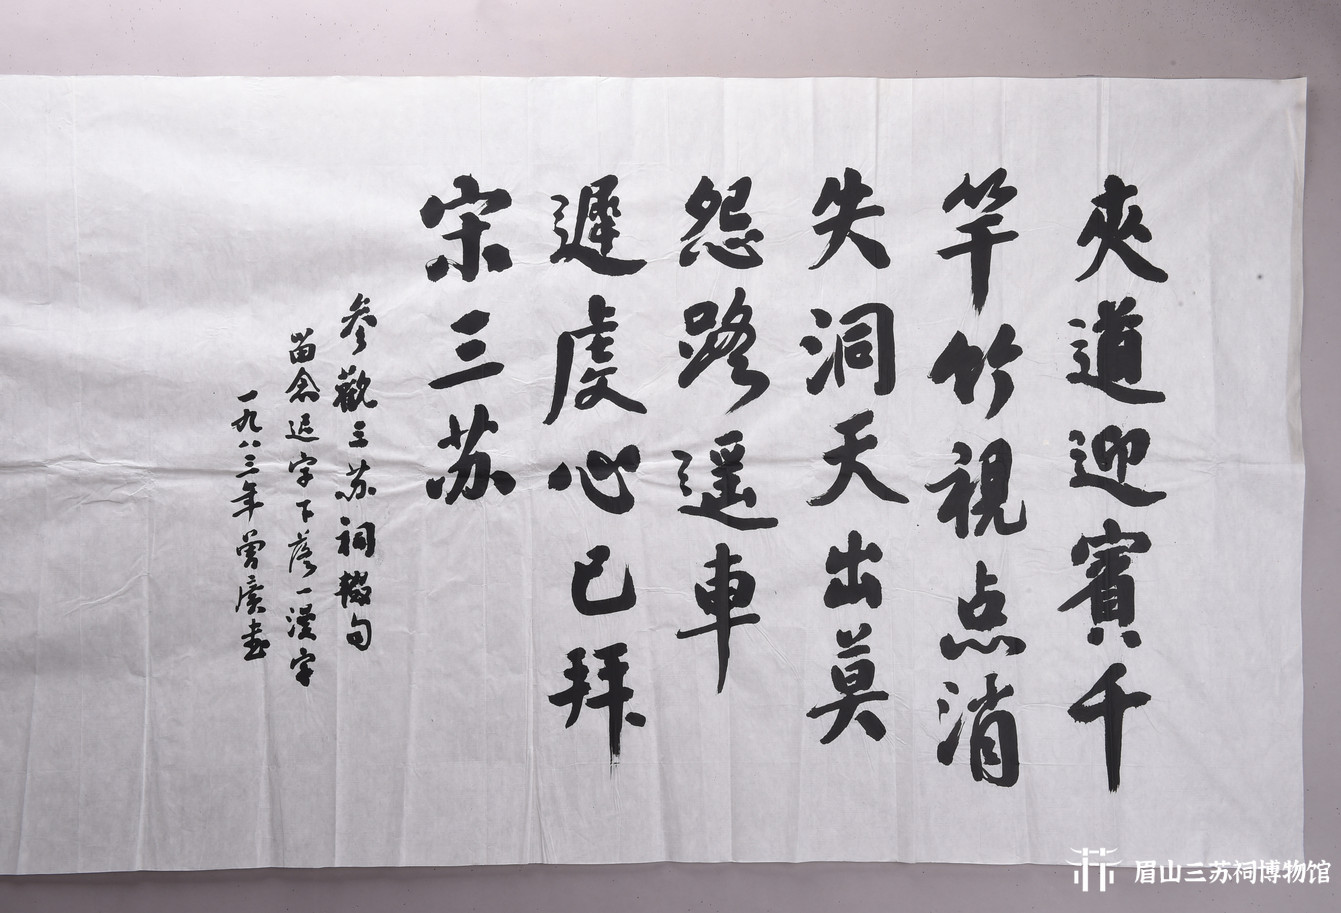 夾道迎賓千
竿竹視点消
失洞天出莫
怨路遥車
遲虔心已拜
宋三苏
参觀三苏祠掇句
留念迟字下落一漢字
一九八三年曾廣
眉山三苏祠博物馆